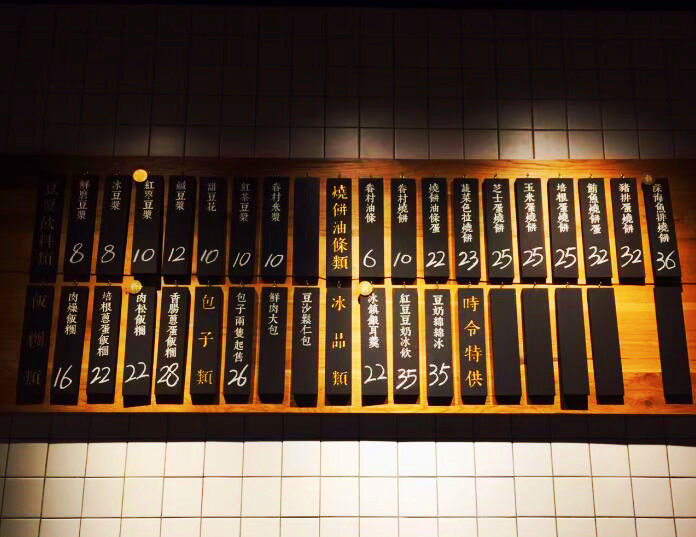 豆漿飲料類
鮮磨豆漿 8
冰豆漿 8
紅棗豆漿 10
鹹豆漿 12
甜豆花 10
紅茶豆漿 10
眷村米漿 10
燒餅油條類
眷村油條 6
眷村燒餅 10
燒餅油條蛋 22
蔬菜色拉燒餅 23
芝士蛋燒餅 25
玉米蛋燒餅 25
培根蛋燒餅 25
鮪魚燒餅蛋 32
豬排蛋燒餅 32
深海魚排燒餅 36
飯糰類
肉燥飯糰 16
培根蔥蛋飯糰 22
肉松飯糰 22
香腸蔥蛋飯糰 28
包子類
包子兩隻起售 26
鮮肉大包
豆沙鬆仁包
冰品類
冰鎮銀耳羹 22
紅豆豆奶冰飲 35
豆奶綿綿冰 35
時令特供